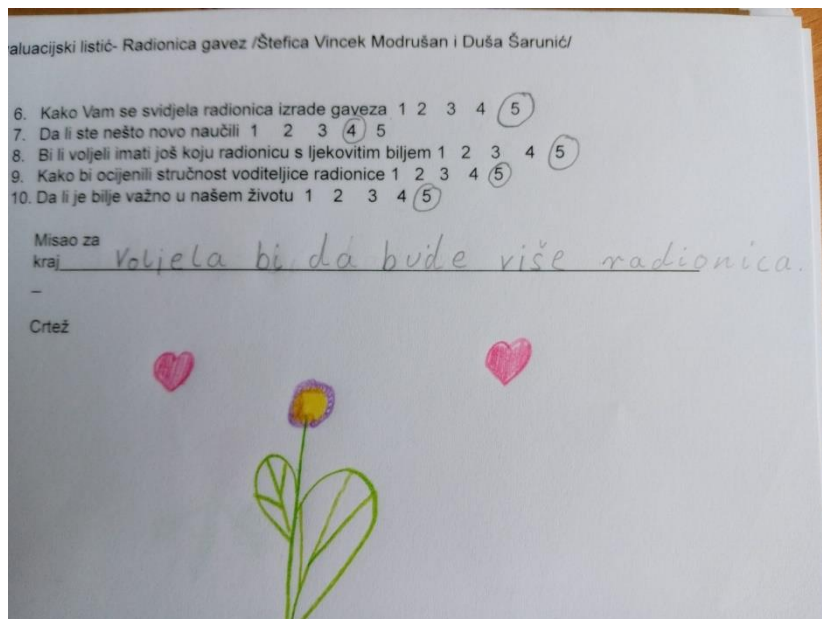 aluacijski listić- Radionica gavez /Štefica Vincek Modrušan i Duša Šarunić/
6. Kako Vam se svidjela radionica izrade gaveza 1 2 3 4 5
7. Da li ste nešto novo naučili 1 2 3 4 5
8. Bi li voljeli imati još koju radionicu s ljekovitim biljem 1 2 3 4 5
9. Kako bi ocijenili stručnost voditeljice radionice 1 2 3 4 5
10. Da li je bilje važno u našem životu 1 2 3 4 5
Misao za
kraj Voljela bi da bude više radionica.
–
Crtež